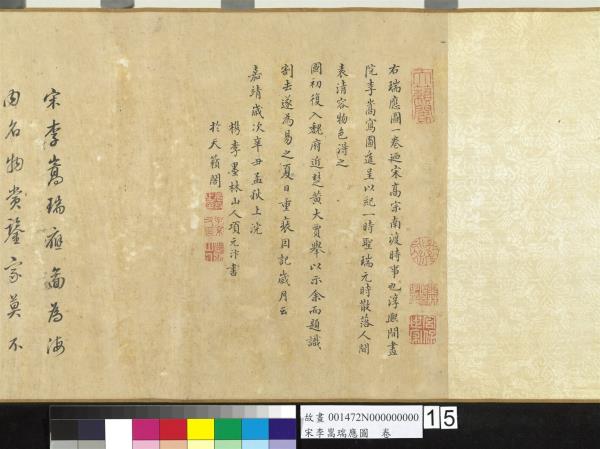 右瑞應圖一卷迺宋高宗南渡時事也淳熙間畫
院李嵩寫圖進呈以紀一時聖瑞元時散落人間
袁清容物色得之
國初復入魏府近楚黃大賈舉以示余而題識
割去遂為易之夏日重裝因記歲月云
嘉靖歲次辛丑孟秋上浣
檇李墨林山人項元汴書
於天籟閣
宋李嵩瑞應圖為海
內名物賞鑒家莫不
天籟閣
故畫 001472N000000000
宋李嵩瑞應圖 卷
15